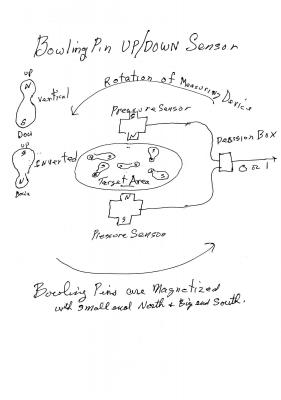 Bowling Pin UP/DOWN Sensor
UP
N
Vertical
S
Down
Rotation of Measuring Device
Pressure Sensor
N
S
Decision Box
0 or 1
UP
S
Inverted
N
Down
Target Area
N
S
Pressure Sensor
Bowling Pins are Magnetized
with small end North & Big end South.